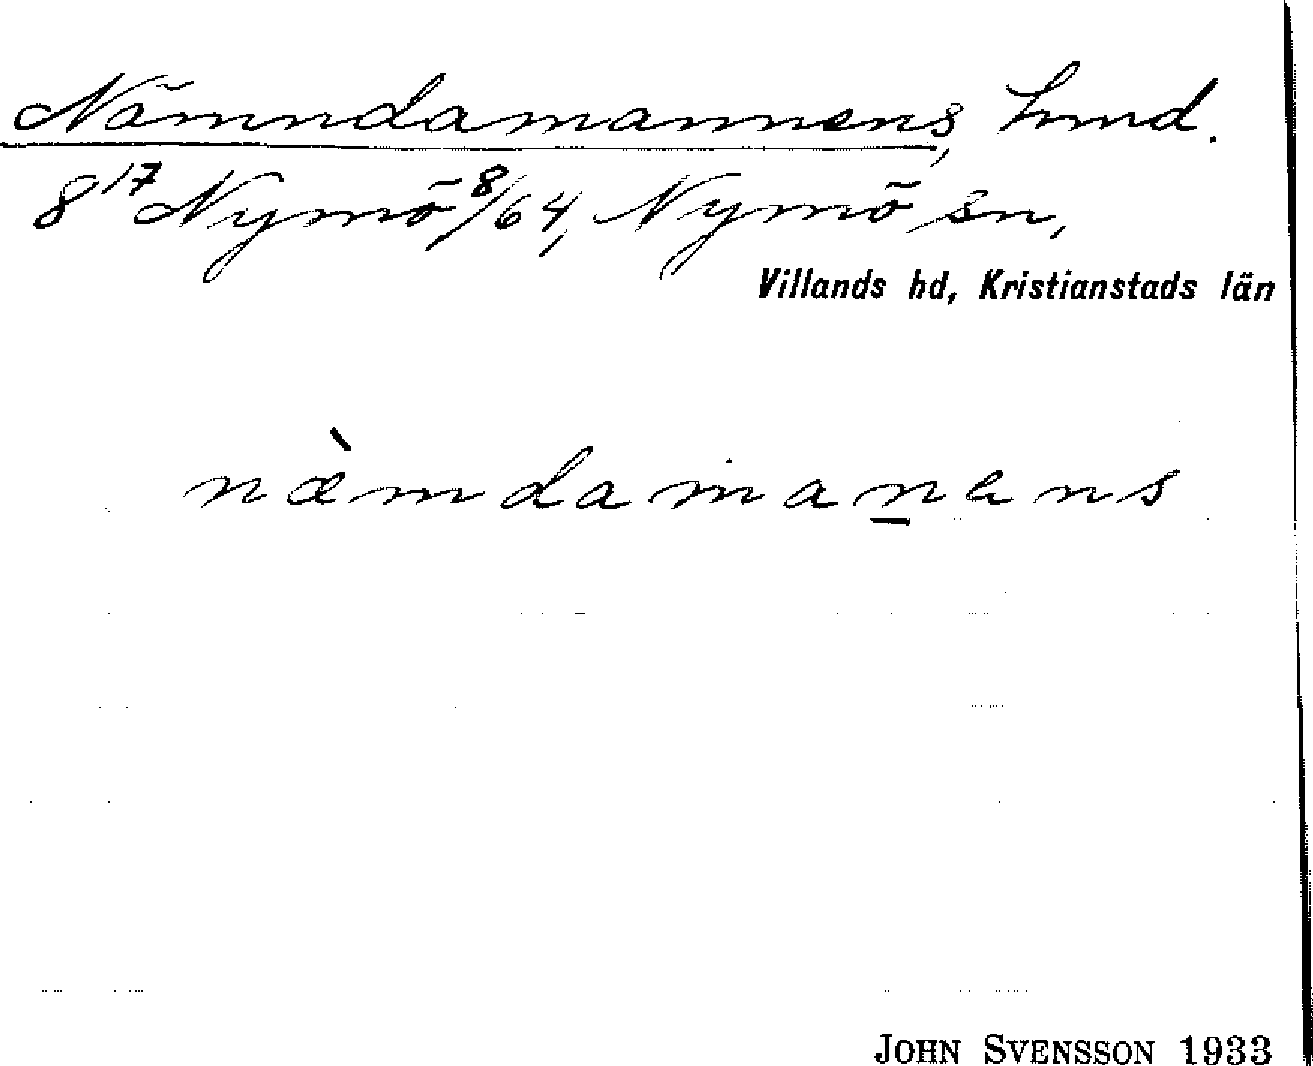 Nämndamannens, hmd.
8¹⁷ Nymö ⁸/64, Nymö sn,
Villands hd, Kristianstads län
næ̀mdamaṉens
JOHN SVENSSON 1933